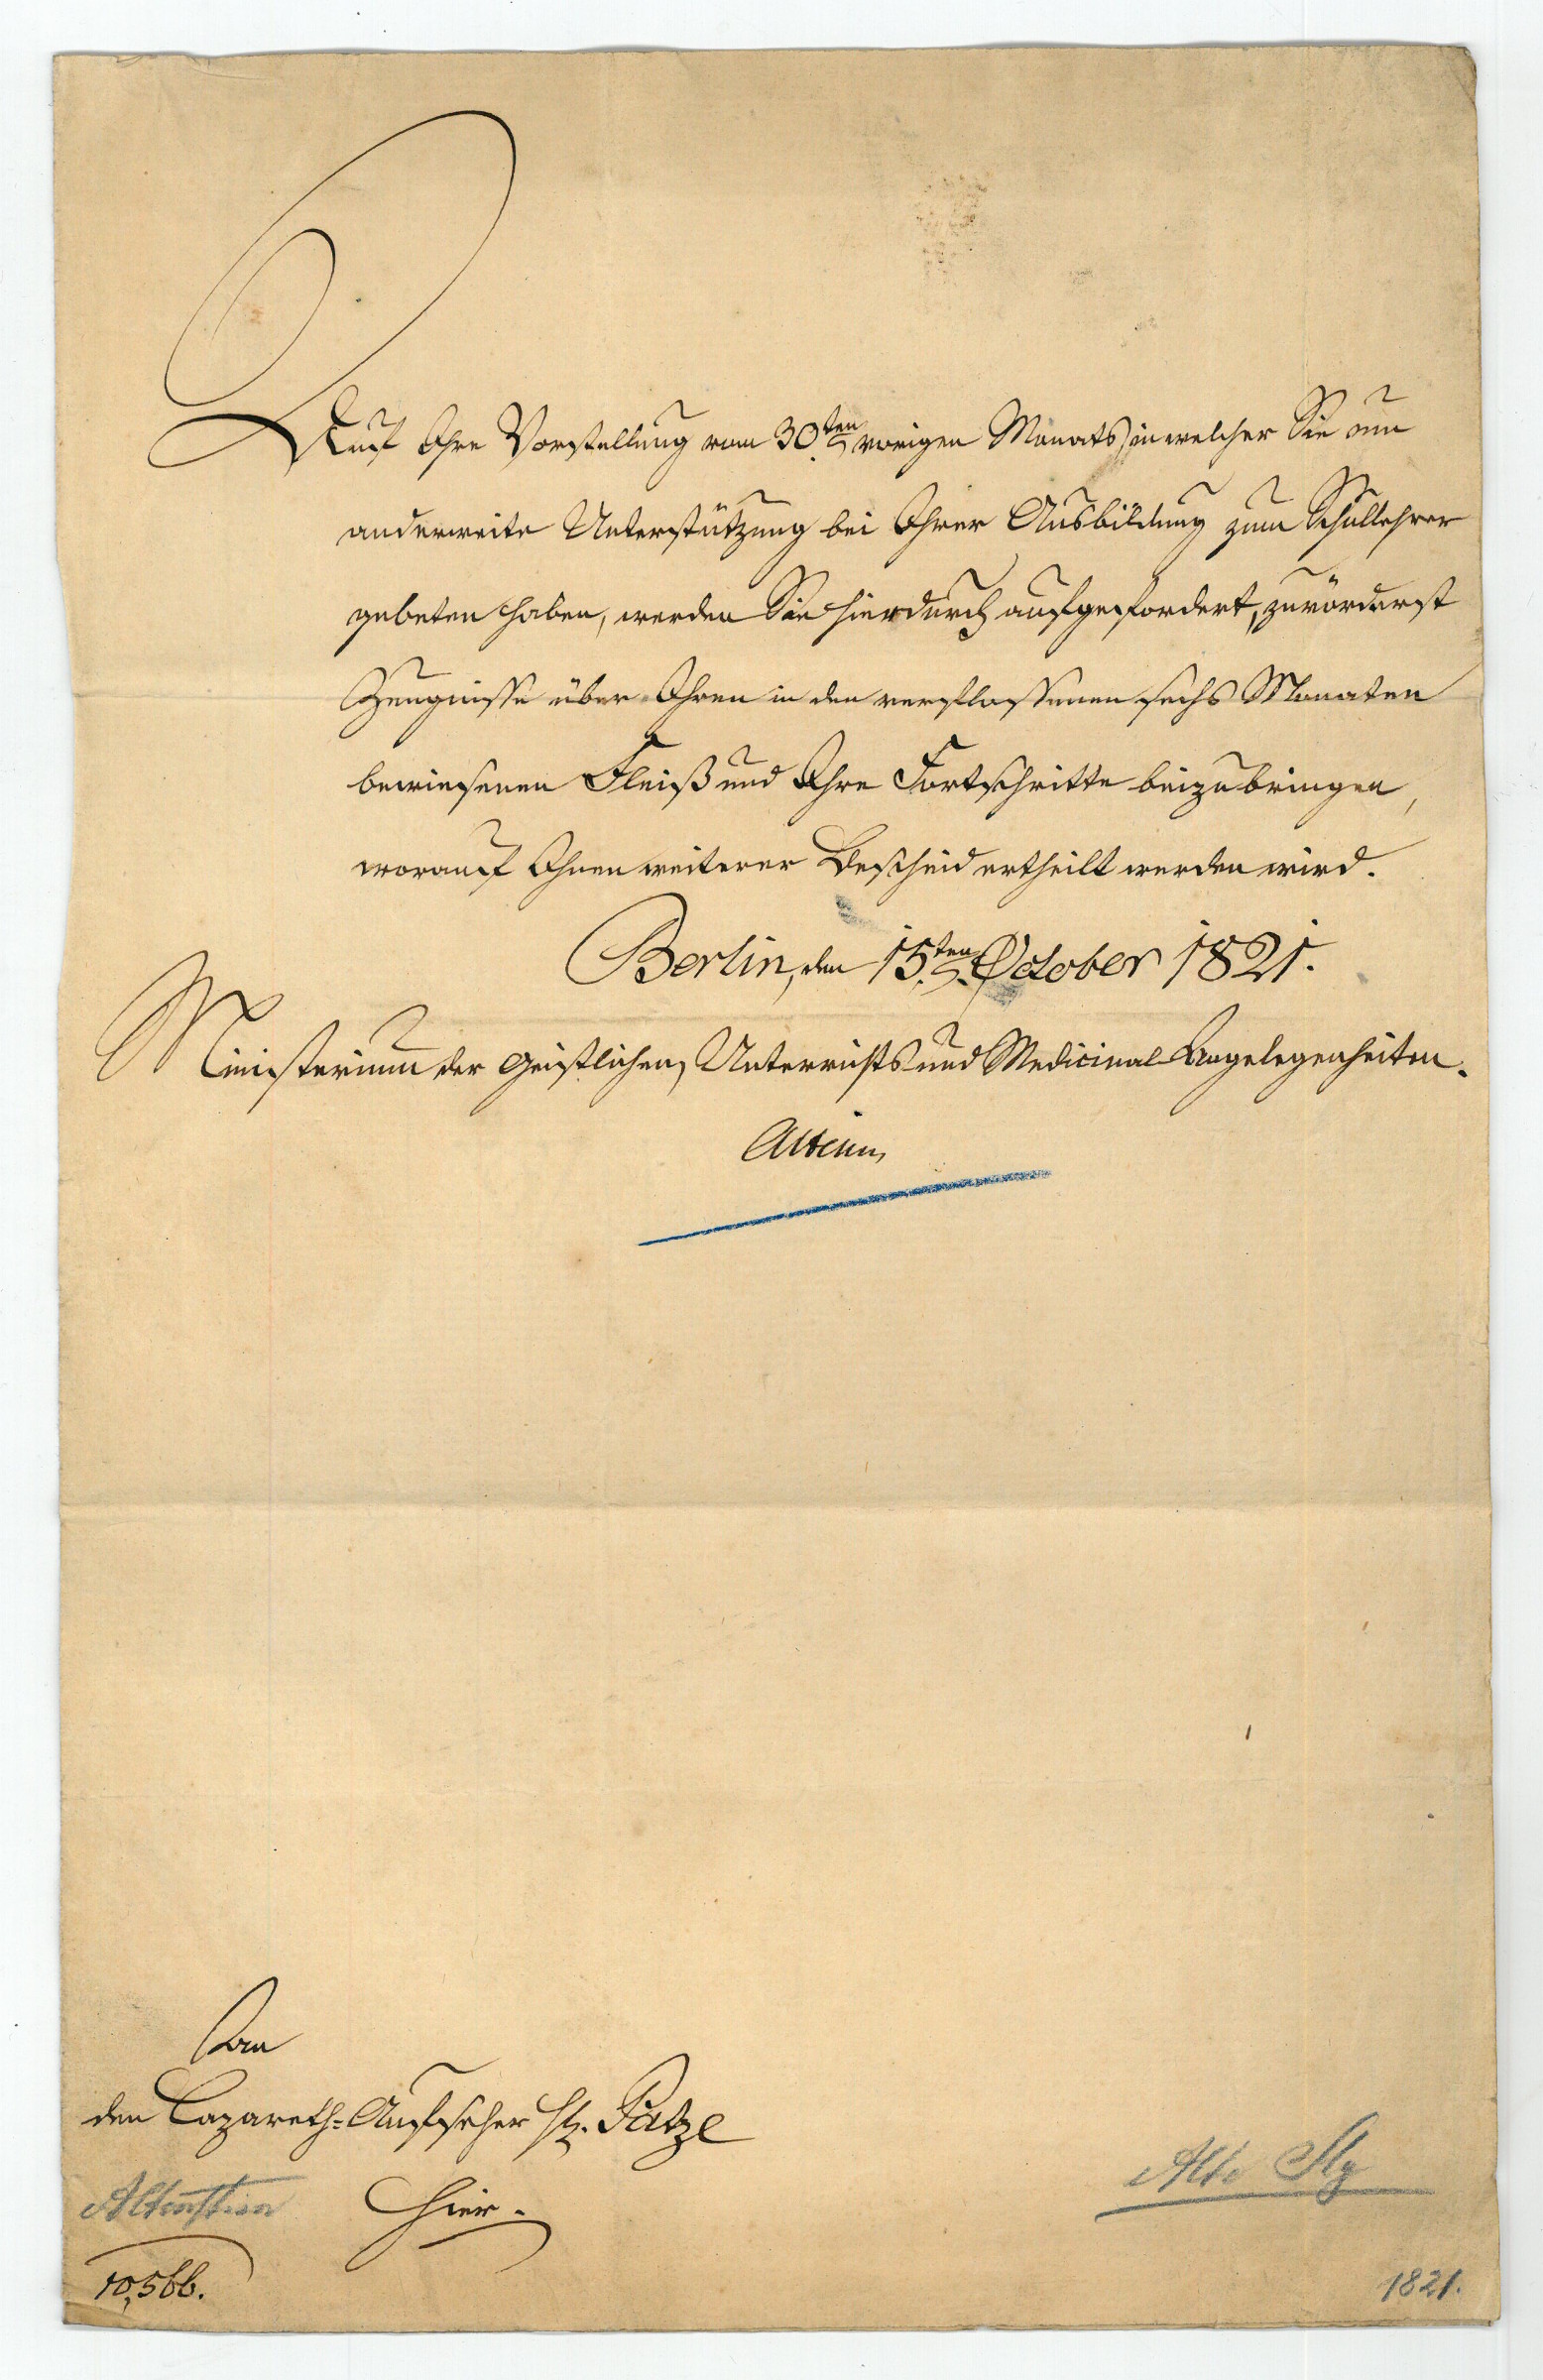 Auf Ihre Vorstellung vom 30.ten vorigen Monats, in welcher Sie um
anderweite Unterstützung bei Ihrer Ausbildung zum Schullehrer
gebeten haben, werden Sie hierdurch aufgefordert, zuvörderst
Zeugnisse über Ihren in den verflossenen sechs Monaten
bewiesenen Fleiß und Ihre Fortschritte beizubringen,
worauf Ihnen weiterer Bescheid ertheilt werden wird.
Berlin, den 15.ten October 1821.
Ministerium der Geistlichen, Unterrichts und Medicinal Angelegenheiten.
Altenstein
An
den Lazareth-Aufseher H. Patze
Altenstein
Hier.
Alte Slg
10,566.
1821.